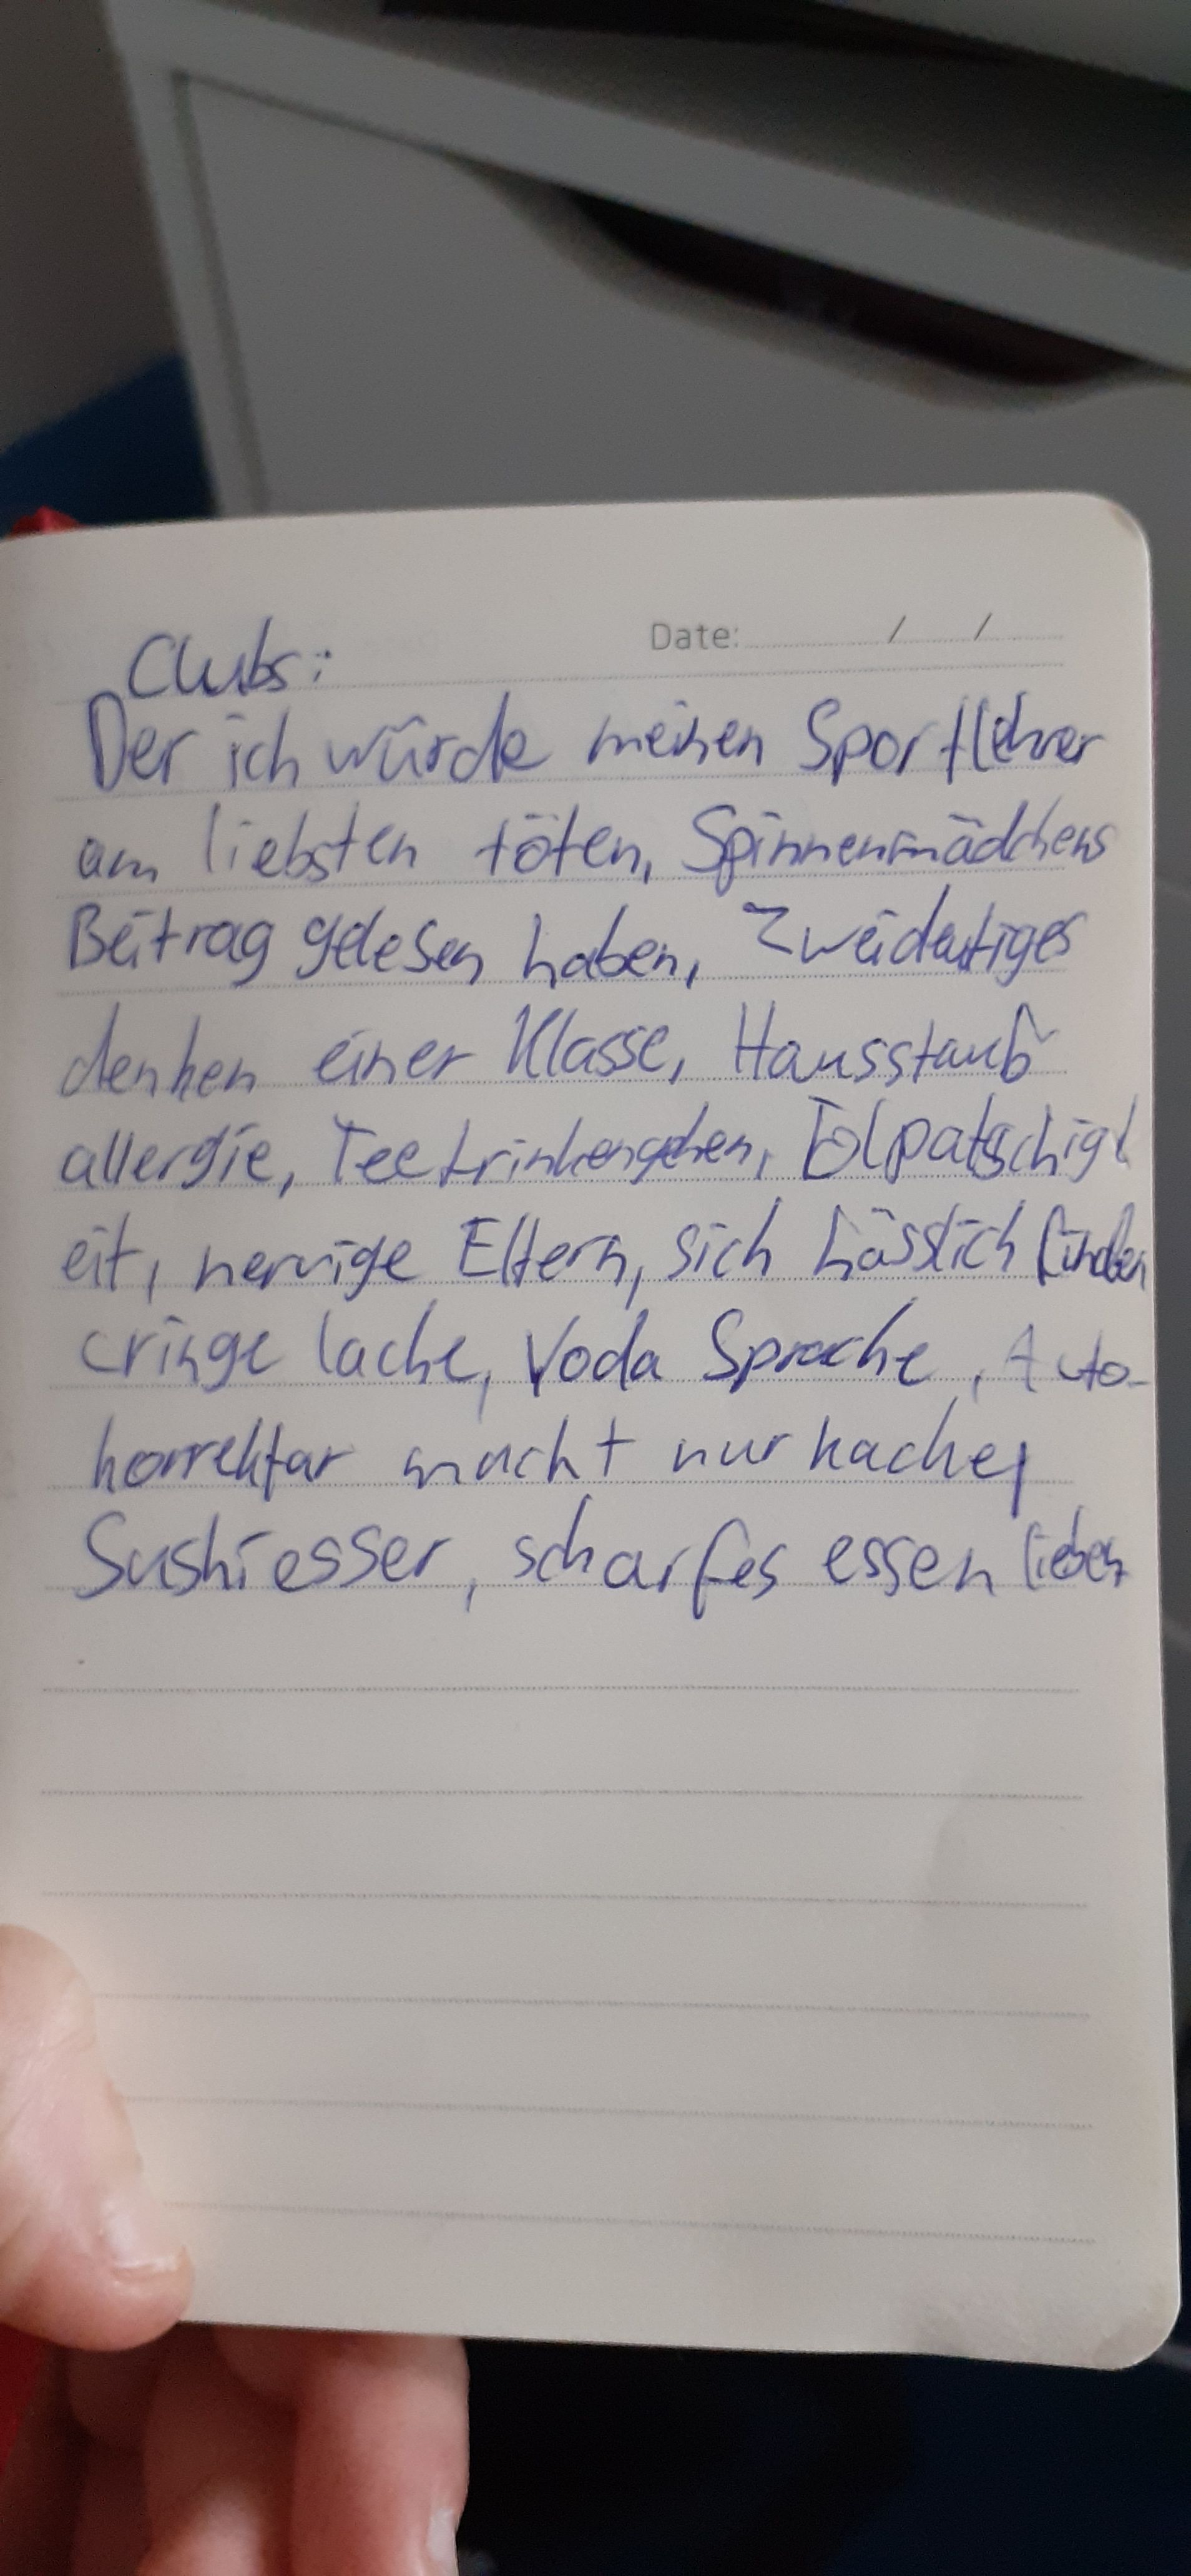 Clubs:
Date: / /
Der ich würde meinen Sportlehrer
am liebsten töten, Spinnenmädchens
Beitrag gelesen haben, Zweideutiges
denken einer Klasse, Hausstaub
allergie, Tee trinkengehen, Tolpatschigk
eit, nervige Eltern, sich hässlich finden
cringe lache, Yoda Sprache, Auto-
korrektur macht nur kacke,
Sushiesser, scharfes essen lieben